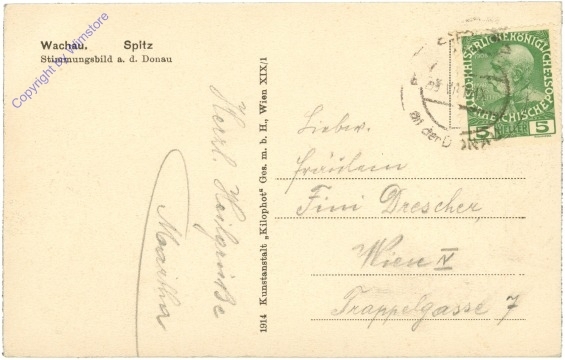 Wachau. Spitz
Stimmungsbild a. d. Donau
Copyright by Wimstore
Herzl. Heilgrüße
Martha
1914 Kunstanstalt „Kilophot“ Ges. m. b. H., Wien XIX/1
KAISERLICHE KÖNIGLICHE
ÖSTERREICHISCHE POST
5 HELLER 5
an der DONAU
Liebw.
Fräulein
Fini Drescher
Wien IV
Trappelgasse 7